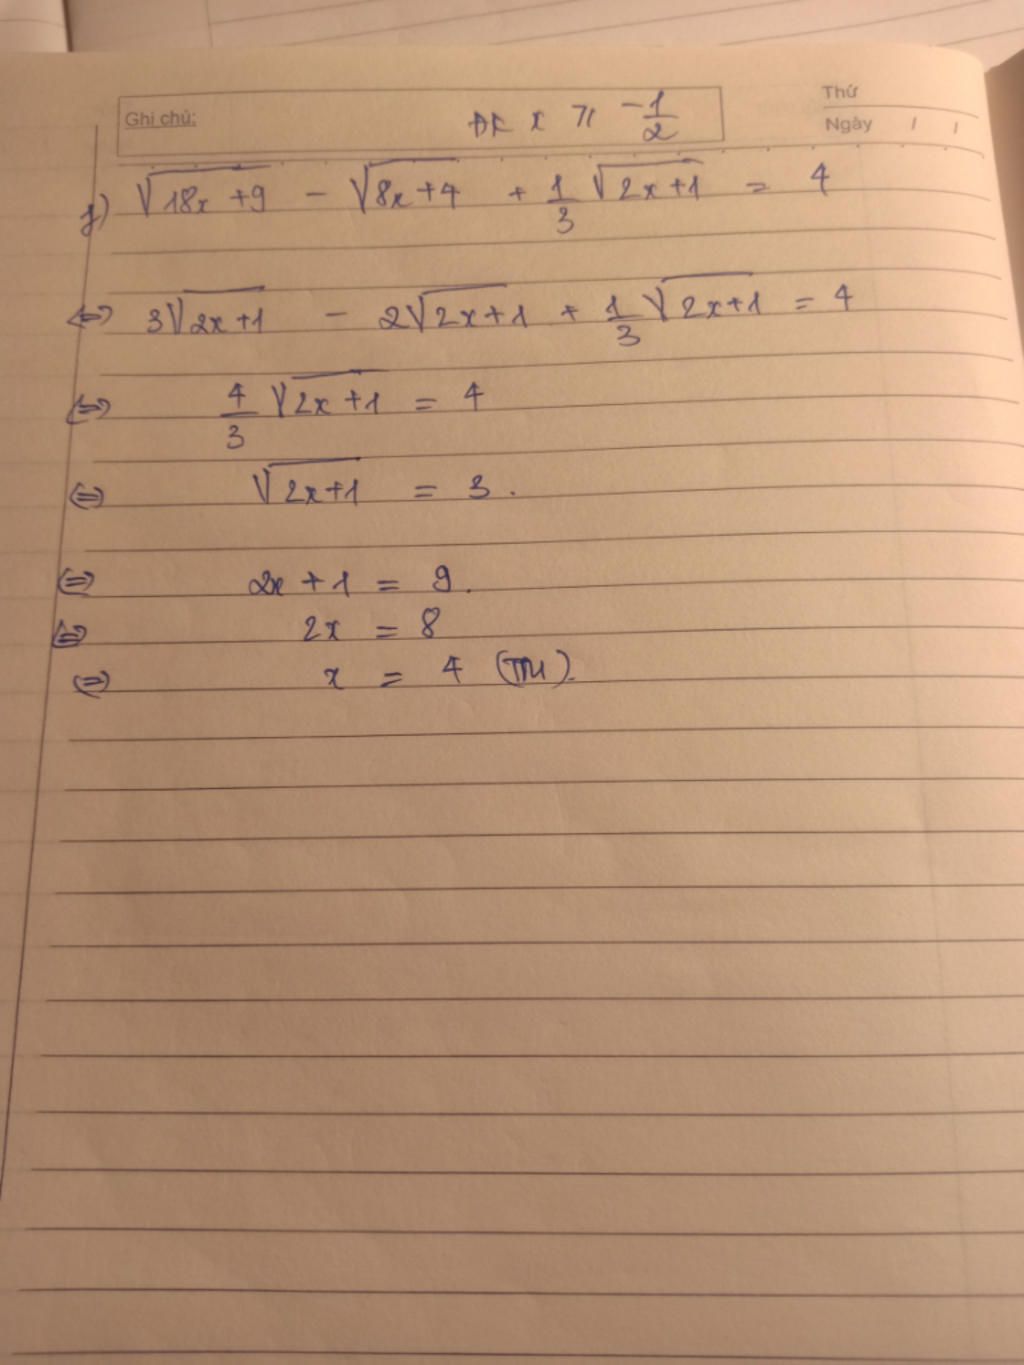 Thứ
Ghi chú: ĐK x ≥ -1/2
Ngày / /
f) √(18x+9) - √(8x+4) + 1/3 √(2x+1) = 4
⇔ 3√(2x+1) - 2√(2x+1) + 1/3 √(2x+1) = 4
⇔ 4/3 √(2x+1) = 4
⇔ √(2x+1) = 3.
⇔ 2x + 1 = 9.
⇔ 2x = 8
⇔ x = 4 (TM).